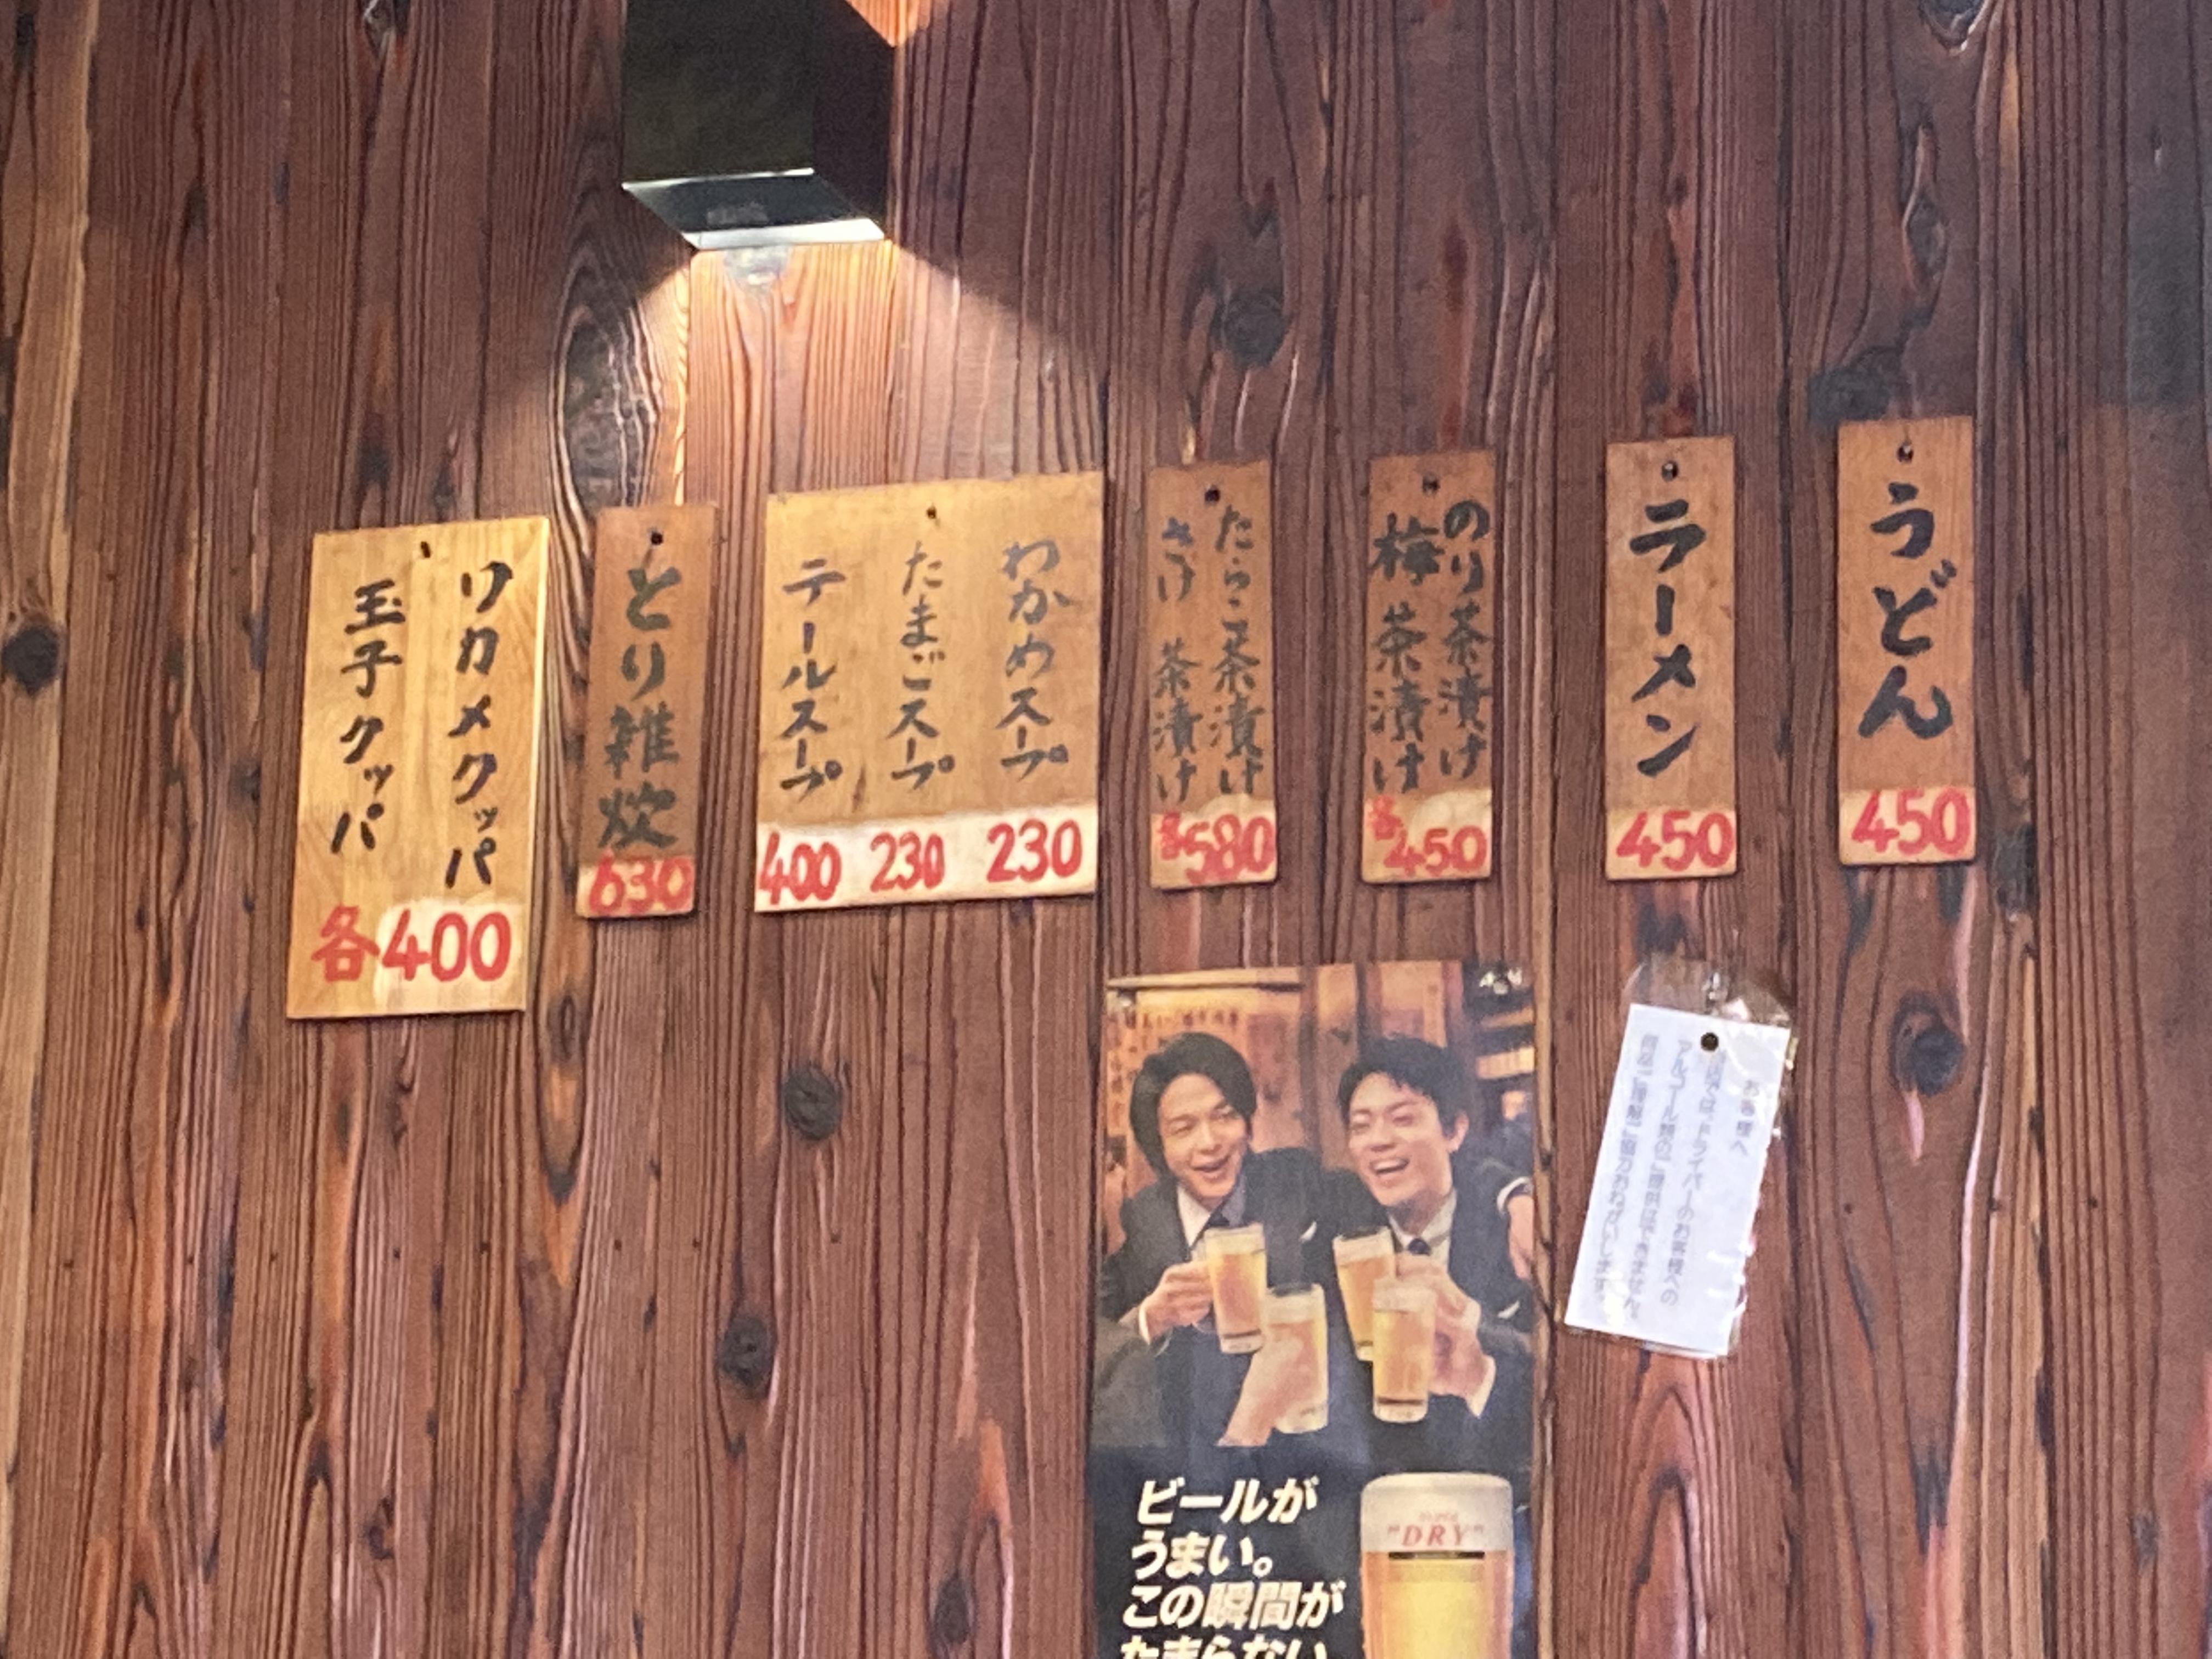 うどん
450
ラーメン
450
のり茶漬け
梅 茶漬け
各450
たらこ茶漬け
さけ 茶漬け
各580
わかめスープ
230
たまごスープ
230
テールスープ
400
とり雑炊
630
ワカメクッパ
玉子クッパ
各400
お客様へ
ドライバーのお客様への
アルコール類のご提供はできません。
ご理解ご協力おねがいします。
ビールが
うまい。
この瞬間が
たまらない
"DRY"